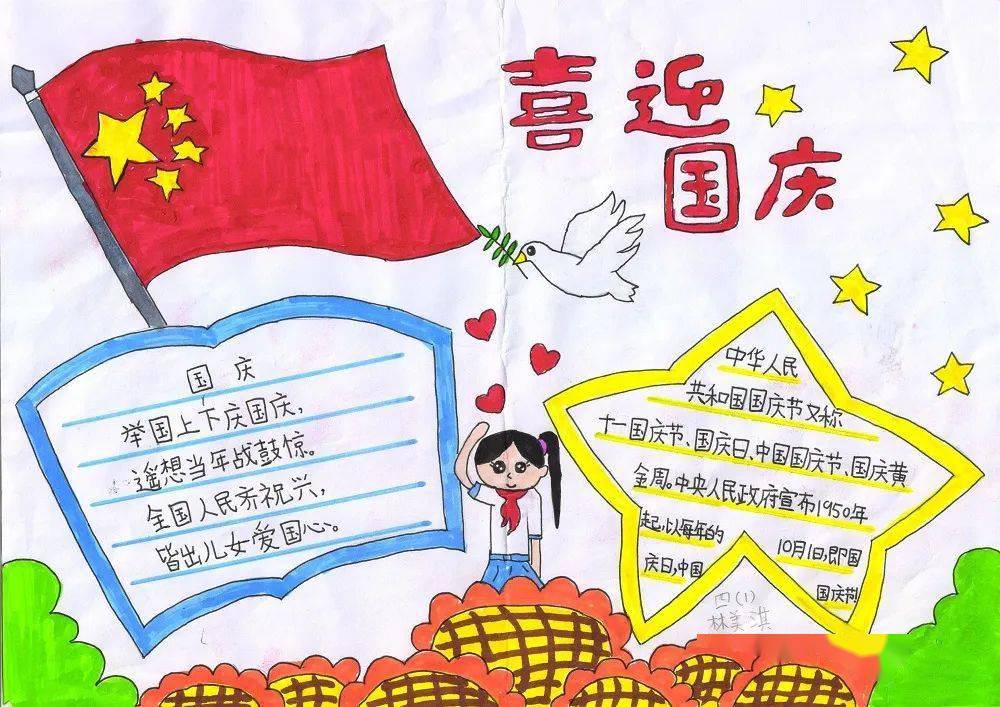 喜迎
国庆
国庆
举国上下庆国庆，
遥想当年战鼓惊。
全国人民齐祝兴，
皆出儿女爱国心。
中华人民
共和国国庆节又称
十一国庆节、国庆日、中国国庆节、国庆黄
金周。中央人民政府宣布1950年
起，以每年的 10月1日，即国
庆日，中国 国庆节！
四（1）
林美淇